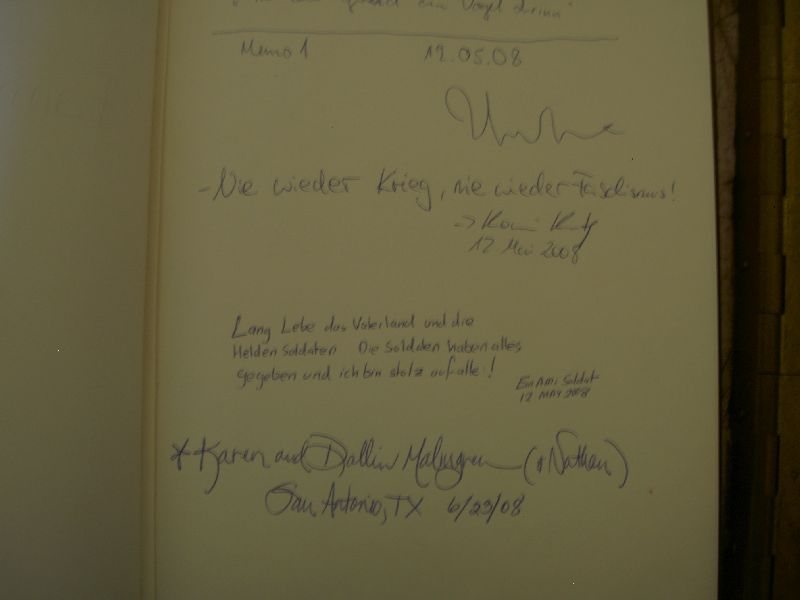 Vogel
Memo 1 12.05.08
- Nie wieder Krieg, nie wieder Faschismus!
12. Mai 2008
Lang Lebe das Vaterland und die
Helden Soldaten Die Soldaten haben alles
gegeben und ich bin stolz auf alle!
Ein Ami Soldat
12 MAY 2008
*Karen and Dallin Malmgren (& Nathan)
San Antonio, TX 6/23/08